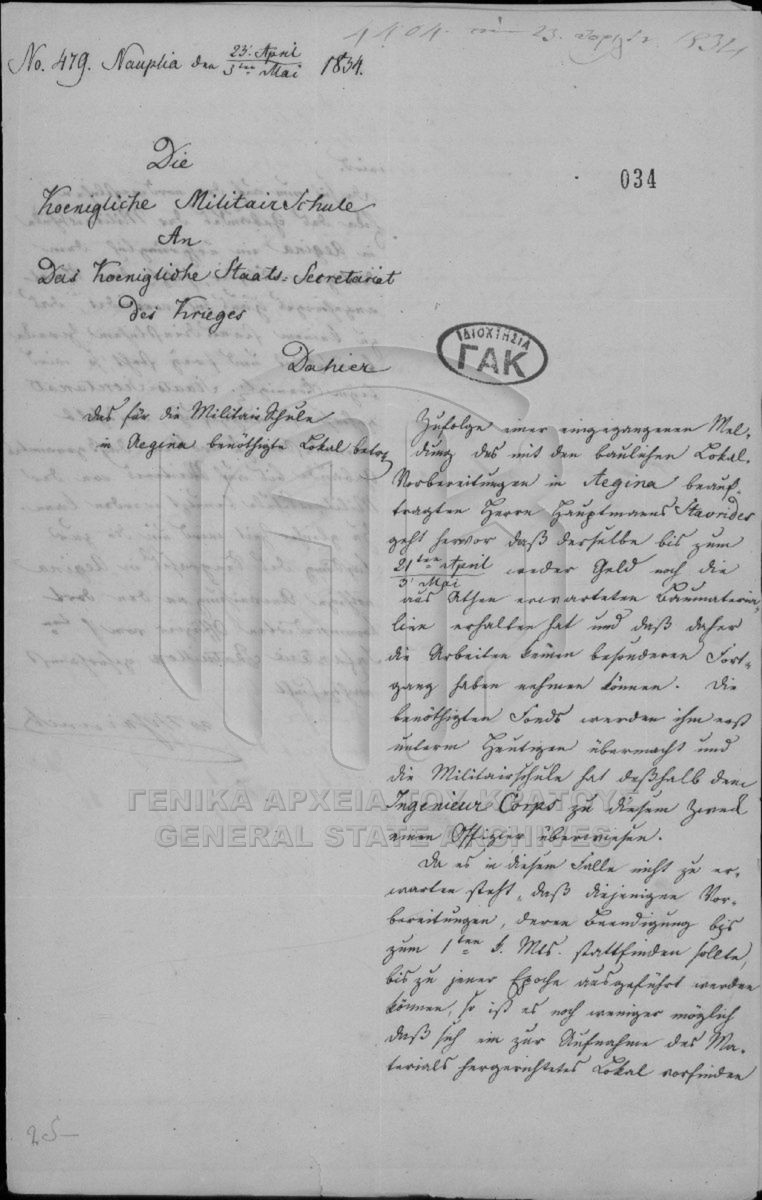 No. 479. Nauplia den 23. April / 5ten Mai 1834.
1834
Die
Koenigliche Militair Schule
An
Das Koenigliche Staats-Secretariat
des Krieges
Dahier
034
ΙΔΙΟΚΤΗΣΙΑ
ΓΑΚ
das für die Militair Schule
in Aegina benöthigte Lokal betr.
Zufolge einer eingegangenen Mel-
dung des mit den baulichen Lokal-
Vorbereitungen in Aegina beauf-
tragten Herrn Hauptmanns Stavrides
geht hervor daß derselbe bis zum
21ten April / 3. Mai weder Geld noch die
aus Athen erwarteten Baumateria-
lien erhalten hat und daß daher
die Arbeiten keinen besonderen Fort-
gang haben nehmen können. Die
benöthigten Fonds werden ihm erst
unterm Heutigen übermacht und
die Militairschule hat deßhalb dem
Ingenieur Corps zu diesem Zweck
einen Offizier überwiesen.
Da es in diesem Falle nicht zu er-
warten steht, daß diejenigen Vor-
bereitungen, deren Beendigung bis
zum 1ten d. Mts. stattfinden sollte,
bis zu jener Epoche ausgeführt werden
können, so ist es noch weniger möglich
daß sich ein zur Aufnahme des Ma-
terials hergerichtetes Lokal vorfinden
ΓΕΝΙΚΑ ΑΡΧΕΙΑ ΤΟΥ ΚΡΑΤΟΥΣ
GENERAL STATE ARCHIVES